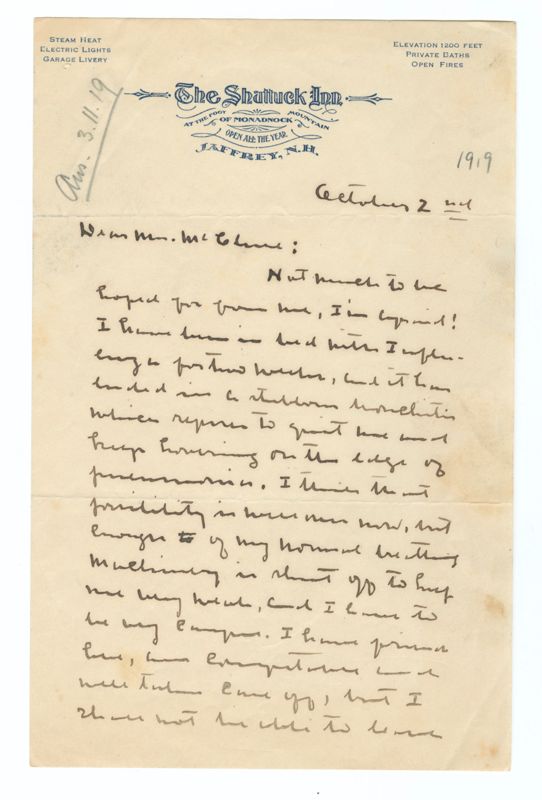 STEAM HEAT
ELECTRIC LIGHTS
GARAGE LIVERY
ELEVATION 1200 FEET
PRIVATE BATHS
OPEN FIRES
The Shattuck Inn
AT THE FOOT OF MONADNOCK MOUNTAIN
OPEN ALL THE YEAR
JAFFREY, N.H.
Ans. 3.11.19
1919
October 2nd
Dear Mr. McClure:
Not much to be
hoped for from me, I'm afraid!
I have been in bed with Influ-
enza for two weeks, and it has
ended in a stubborn bronchitis
which refuses to quit me and
keeps hovering on the edge of
pneumonia. I think that
possibility is well over now, but
enough of my normal breathing
machinery is shut off to keep
me very weak, and I have to
be very careful. I have friends
here, am comfortable and
well taken care of, but I
shall not be able to leave